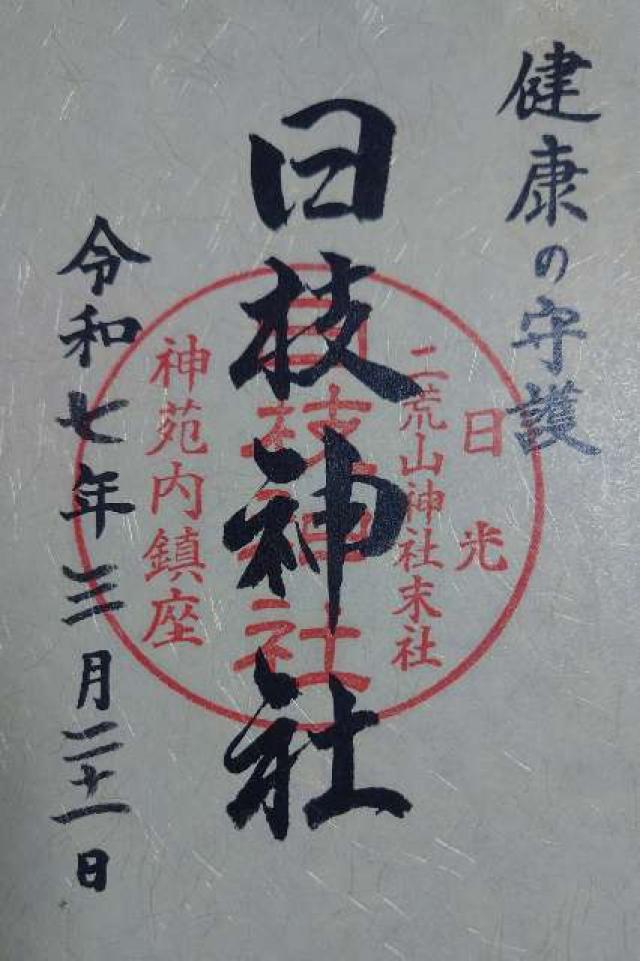 健康の守護
日枝神社
令和七年三月二十一日
日光
二荒山神社末社
日枝神社
神苑内鎮座